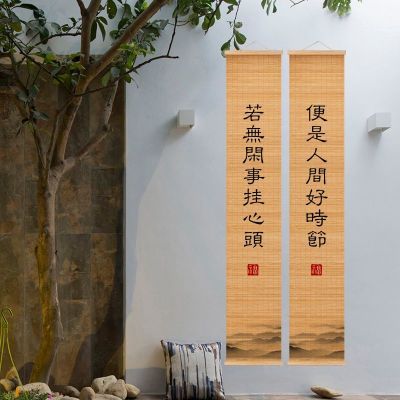 若無閑事挂心頭
便是人間好時節